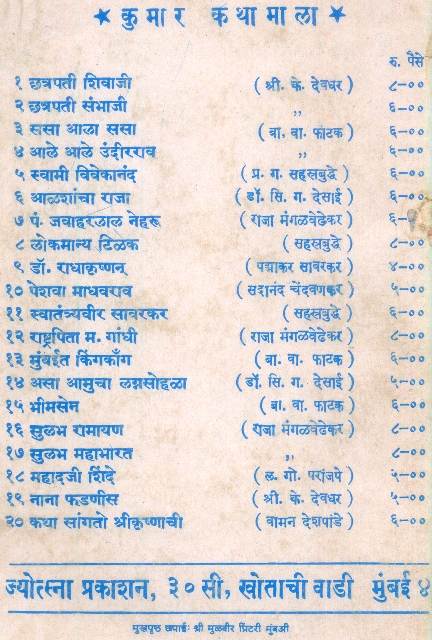 ★ कुमार कथामाला ★
रु. पैसे
१ छत्रपती शिवाजी ( श्री. के. देवधर ) ८-००
२ छत्रपती संभाजी ,, ६-००
३ ससा आला ससा ( वा. वा. फाटक ) ६-००
४ आले आले उंदीरराव ,, ६-००
५ स्वामी विवेकानंद ( प्र. ग. सहस्रबुद्धे ) ६-००
६ आळशांचा राजा ( डॉ. सि. ग. देसाई ) ६-००
७ पं. जवाहरलाल नेहरू ( राजा मंगळवेढेकर ) ६-००
८ लोकमान्य टिळक ( सहस्रबुद्धे ) ८-००
९ डॉ. राधाकृष्णन् ( पद्माकर सावरकर ) ४-००
१० पेशवा माधवराव ( सदानंद चेंदवणकर ) ५-००
११ स्वातंत्र्यवीर सावरकर ( सहस्रबुद्धे ) ६-००
१२ राष्ट्रपिता म. गांधी ( राजा मंगळवेढेकर ) ८-००
१३ मुंबईत किंगकाँग ( वा. वा. फाटक ) ६-००
१४ असा आमुचा लग्नसोहळा ( डॉ. सि. ग. देसाई ) ५-००
१५ भीमसेन ( वा. वा. फाटक ) ६-००
१६ सुलभ रामायण ( राजा मंगळवेढेकर ) ८-००
१७ सुलभ महाभारत ,, ८-००
१८ महादजी शिंदे ( ल. गो. परांजपे ) ५-००
१९ नाना फडणीस ( श्री. के. देवधर ) ५-००
२० कथा सांगतो श्रीकृष्णाची ( वामन देशपांडे ) ६-००
ज्योत्स्ना प्रकाशन, ३० सी, खोताची वाडी मुंबई ४
मुखपृष्ठ छपाई: श्री मुळबीर प्रिंटरी मुंबअी